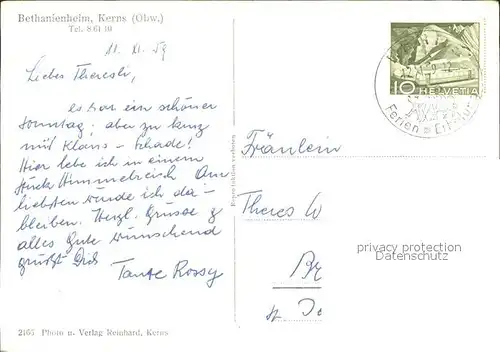 Bethanienheim, Kerns (Obw.)
Tel. 8 61 10
11. XI. 59
Liebes Theresli,
es war ein schöner
Sonntag; aber zu kurz
mit Klaus - schade!
Hier lebe ich in einem
Stück Himmelreich. Am
liebsten würde ich da-
bleiben. Herzl. Grüsse &
alles Gute wünschend
grüsst Dich
Tante Rossy
2165 Photo u. Verlag Reinhard, Kerns
Reproduktion verboten
10 HELVETIA
Ferien
Fräulein
Theres W
privacy protection